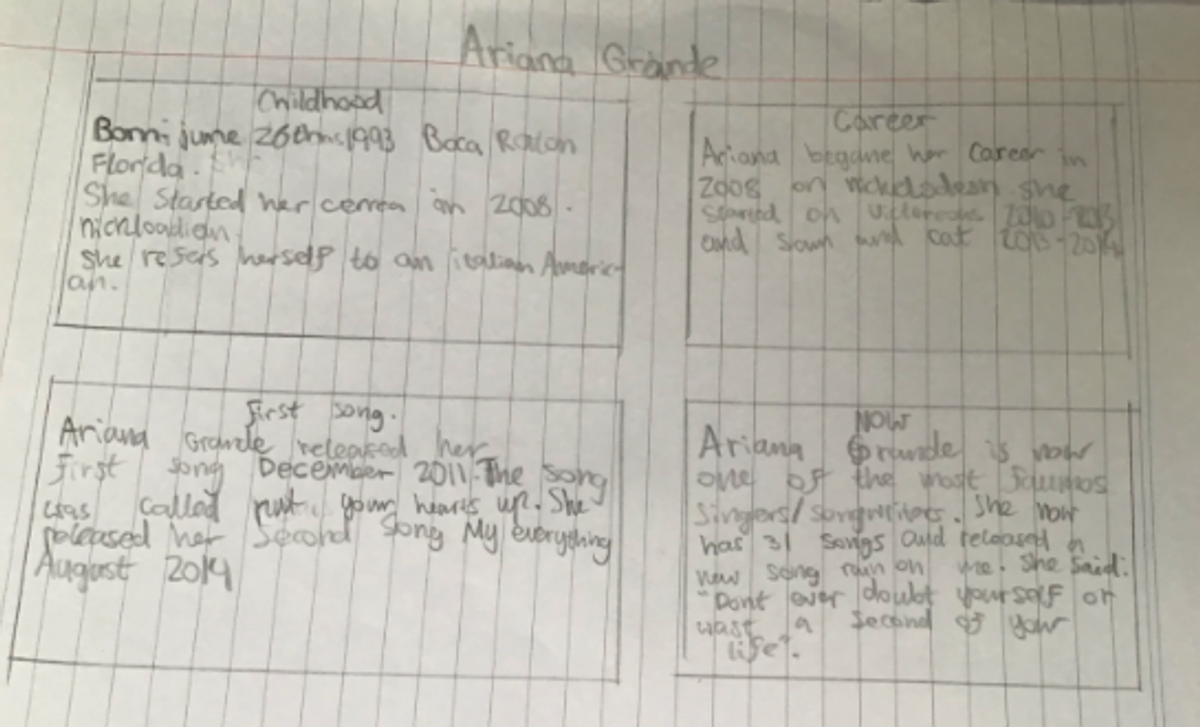 Ariana Grande
Childhood
Born: june 26th 1993 Boca Raton
Florida.
She Started her cerrea in 2008.
nickloadien
she refers herself to an italian Americ-
an.
Career
Ariana begane her Career in
2008 on nickelodeon she
started on victoreous 2010-2013
and sam and cat 2013-2014
First song.
Ariana Grande released her
First song December 2011. The song
was called put your hearts up. She
released her Second Song My everything
August 2014
NOW
Ariana Grande is now
one of the most famos
singers/songwriters. She now
has 31 songs and released a
new song rain on me. She said:
"Dont ever doubt yourself or
wast a second of your
life".